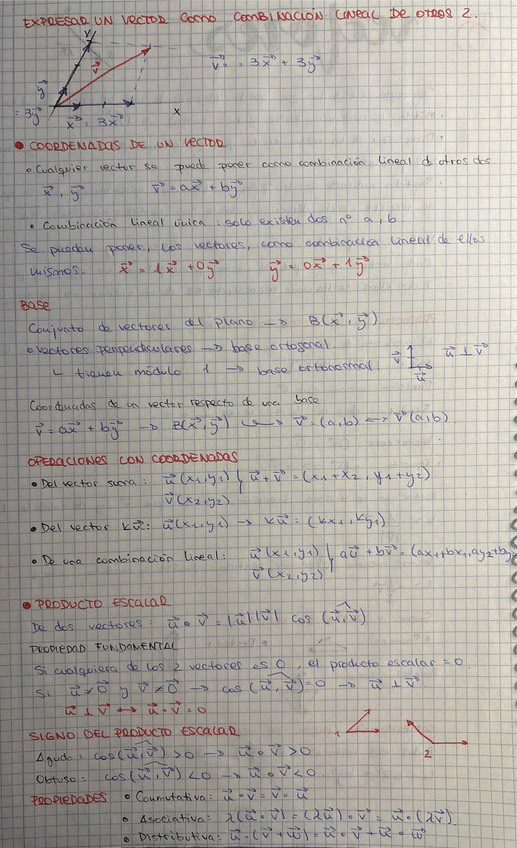 EXPRESAR UN VECTOR COMO COMBINACIÓN LINEAL DE OTROS 2.
y
v⃗
v⃗ = 3x⃗ + 3y⃗
y⃗
= 3y⃗
x⃗ = 3x⃗
x
● COORDENADAS DE UN VECTOR
• Cualquier vector se puede poner como combinación lineal de otros dos
x⃗, y⃗ v⃗ = ax⃗ + by⃗
• Combinación lineal única: solo existen dos nº a, b
Se puedan poner, los vectores, como combinación lineal de ellos
mismos. x⃗ = 1x⃗ + 0y⃗ y⃗ = 0x⃗ + 1y⃗
BASE
Conjunto de vectores del plano → B(x⃗, y⃗).
• Vectores perpendiculares → base ortogonal
↳ tienen módulo 1 → base ortonormal.
v⃗ u⃗ u⃗ ⊥ v⃗
Coordenadas de un vector respecto de una base
v⃗ = ax⃗ + by⃗ → B(x⃗, y⃗) ↔ v⃗ = (a, b) ↔ v⃗(a, b)
OPERACIONES CON COORDENADAS
• Del vector suma: u⃗(x1, y1) } u⃗ + v⃗ = (x1 + x2, y1 + y2)
v⃗(x2, y2)
• Del vector ku⃗: u⃗(x1, y1) → ku⃗ = (kx1, ky1)
• De una combinación lineal: u⃗(x1, y1) } au⃗ + bv⃗ = (ax1 + bx1, ay2 + by
v⃗(x2, y2)
● PRODUCTO ESCALAR
De dos vectores: u⃗ • v⃗ = |u⃗| |v⃗| cos (u⃗, v⃗)
PROPIEDAD FUNDAMENTAL
Si cualquiera de los 2 vectores es 0, el producto escalar = 0.
Si u⃗ ≠ 0⃗ y v⃗ ≠ 0⃗ → cos (u⃗, v⃗) = 0 → u⃗ ⊥ v⃗
u⃗ ⊥ v⃗ ↔ u⃗ • v⃗ = 0
SIGNO DEL PRODUCTO ESCALAR
1 2
Agudo: cos(u⃗, v⃗) > 0 → u⃗ • v⃗ > 0
Obtuso: cos(u⃗, v⃗) < 0 → u⃗ • v⃗ < 0.
PROPIEDADES • Conmutativa: u⃗ • v⃗ = v⃗ • u⃗
• Asociativa: λ(u⃗ • v⃗) = (λu⃗) • v⃗ = u⃗ • (λv⃗).
• Distributiva: u⃗ • (v⃗ + w⃗) = u⃗ • v⃗ + u⃗ • w⃗